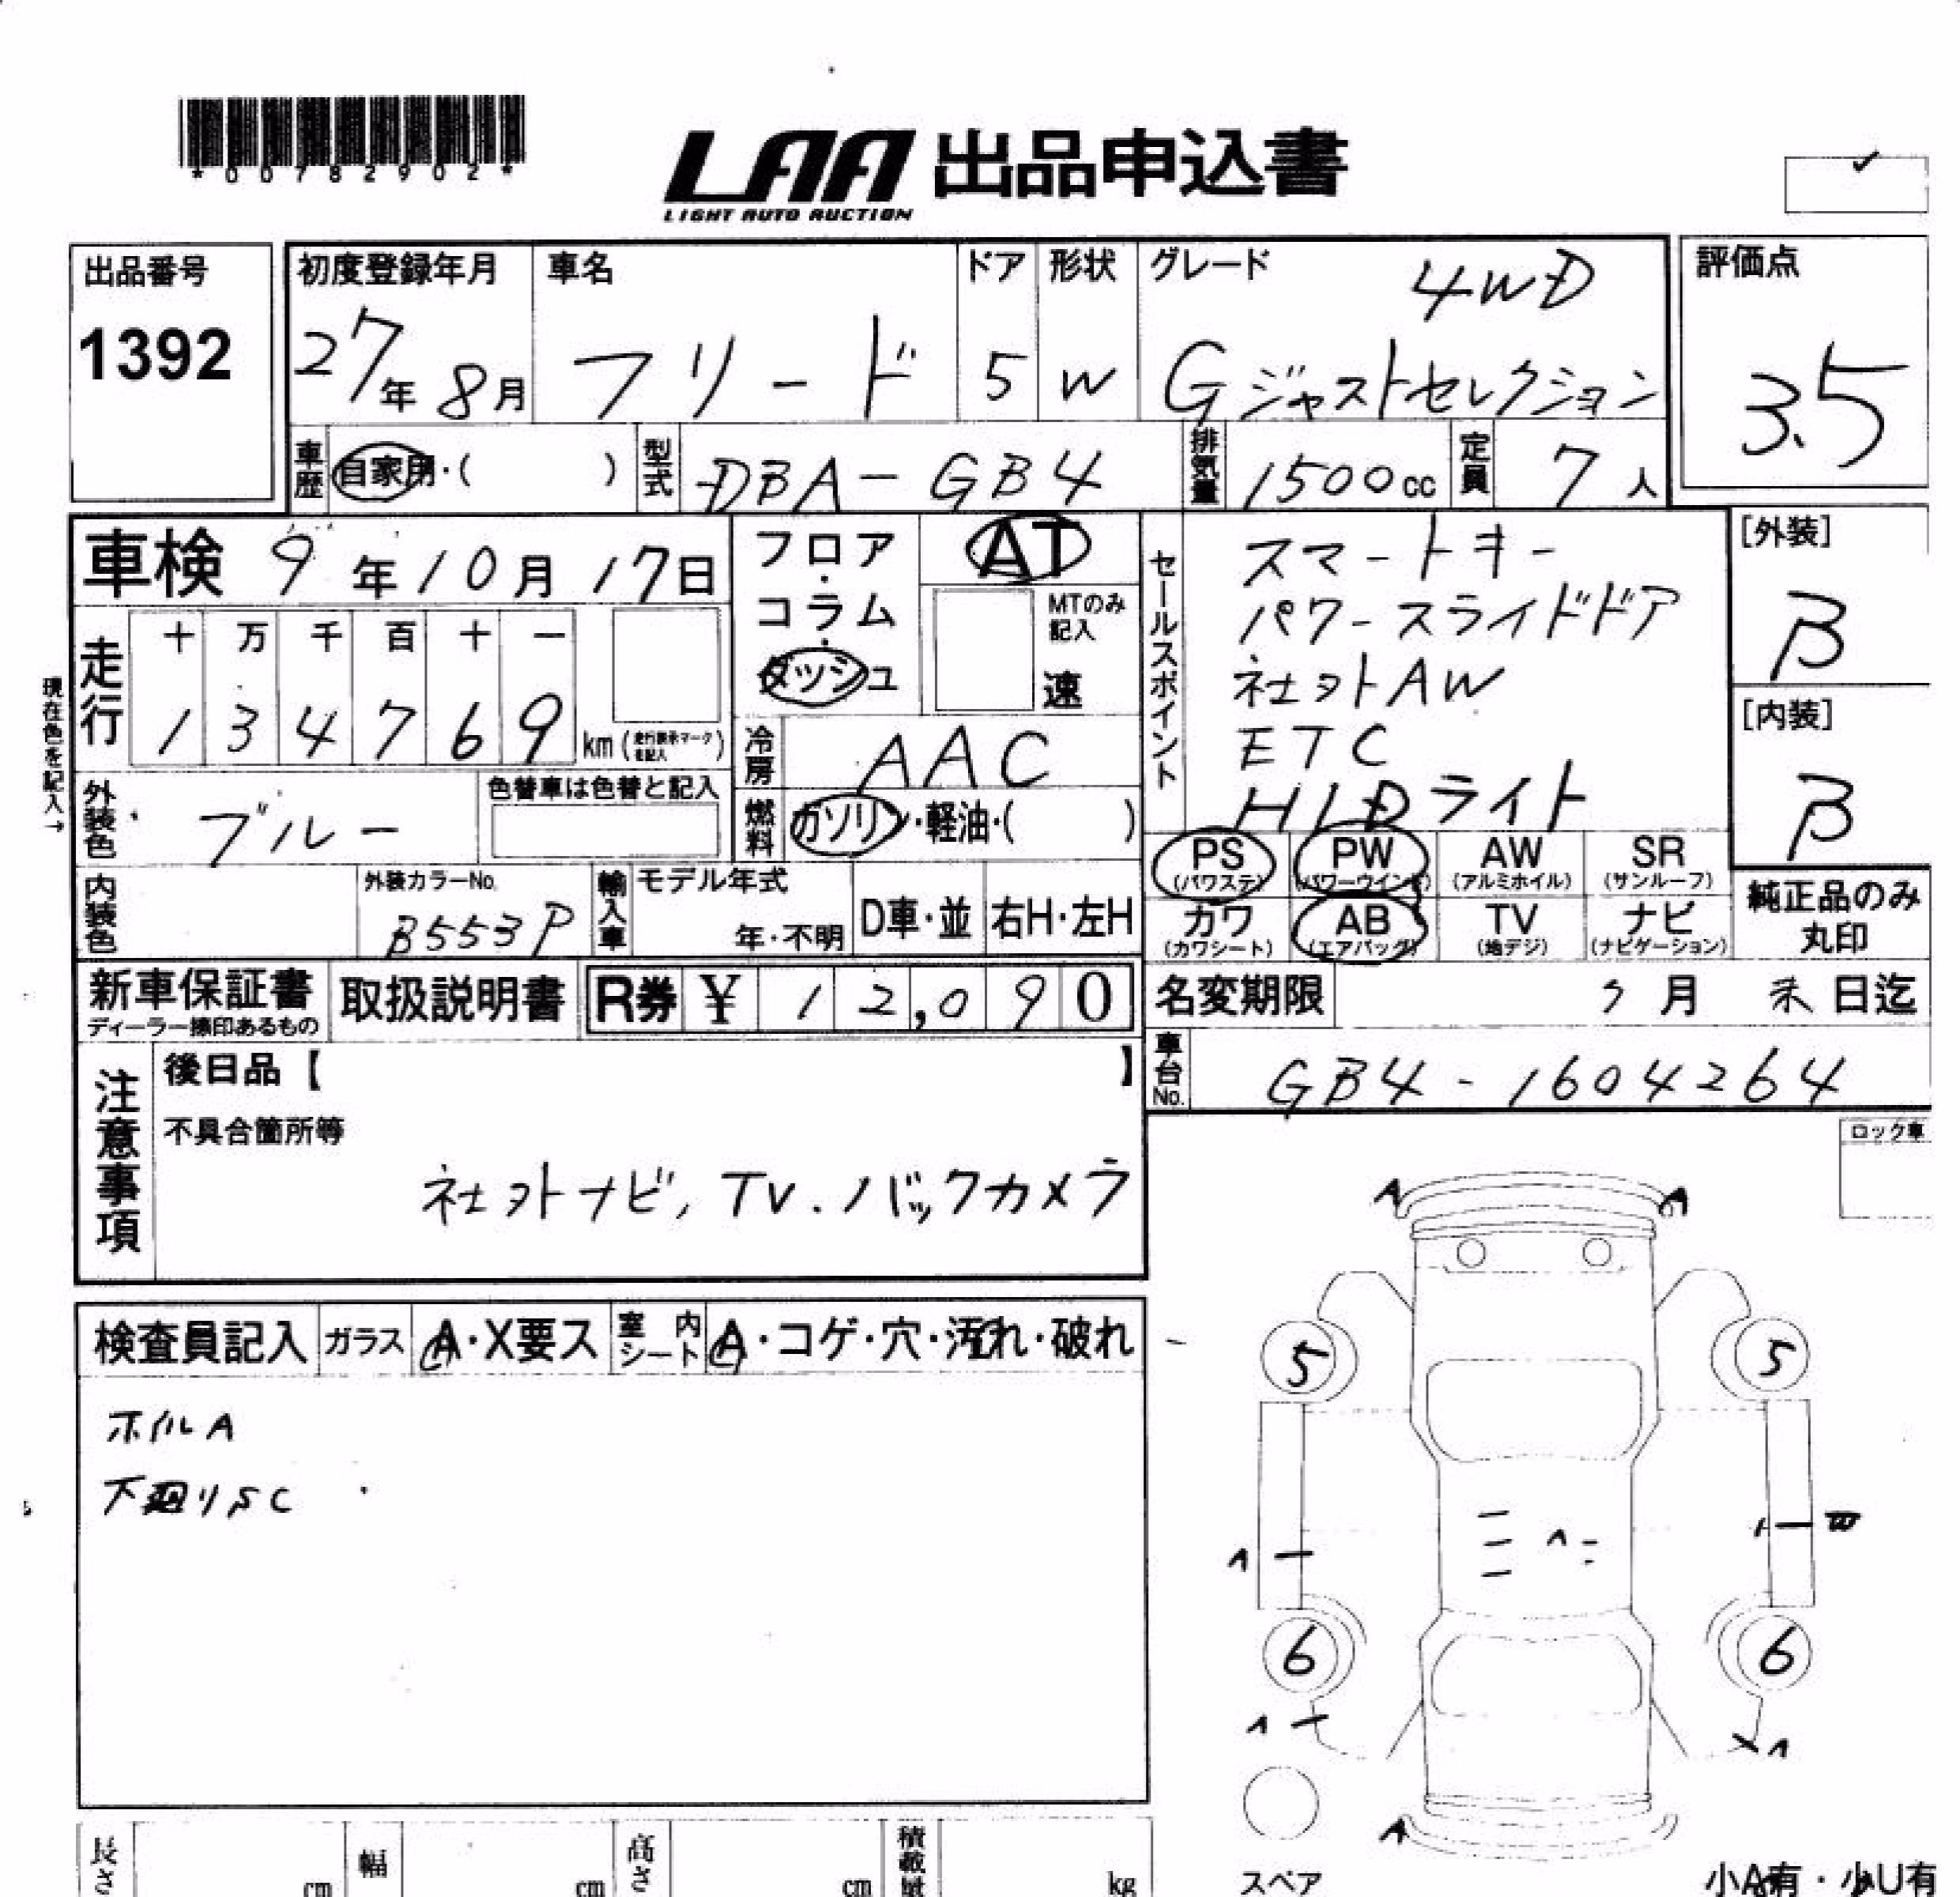 *00782902*
LAA 出品申込書
LIGHT AUTO AUCTION
出品番号
1392
初度登録年月
27年 8月
車名
フリード
ドア
5
形状
W
グレード
4WD
Gジャストセレクション
評価点
3.5
車歴
自家用・( )
型式
DBA-GB4
排気量
1500cc
定員
7人
車検 9年10月17日
現在色を記入→
走行
十 万 千 百 十 一
1 3 4 7 6 9 km (走行表示マークを記入)
フロア・コラム・ダッシュ
AT
MTのみ記入
速
冷房
AAC
燃料
ガソリン・軽油・( )
セールスポイント
スマートキー
パワースライドドア
社外AW
ETC
HIDライト
[外装]
B
[内装]
B
外装色
ブルー
色替車は色替と記入
内装色
外装カラーNo.
B553P
輸入車
モデル年式
年・不明
D車・並
右H・左H
PS
(パワステ)
PW
(パワーウインド)
AW
(アルミホイル)
SR
(サンルーフ)
カワ
(カワシート)
AB
(エアバッグ)
TV
(地デジ)
ナビ
(ナビゲーション)
純正品のみ
丸印
新車保証書
ディーラー捺印あるもの
取扱説明書
R券 ¥ 12,090
名変期限
月 末 日迄
車台No.
GB4-1604264
注意事項
後日品【 】
不具合箇所等
社外ナビ,TV.バックカメラ
ロック車
検査員記入
ガラス
A・X要ス
室内シート
A・コゲ・穴・汚れ・破れ
ホイルA
下廻りSC
A A
5 5
W
6 6
A
スペア
長さ cm
幅 cm
高さ cm
積載量 kg
小A有・小U有